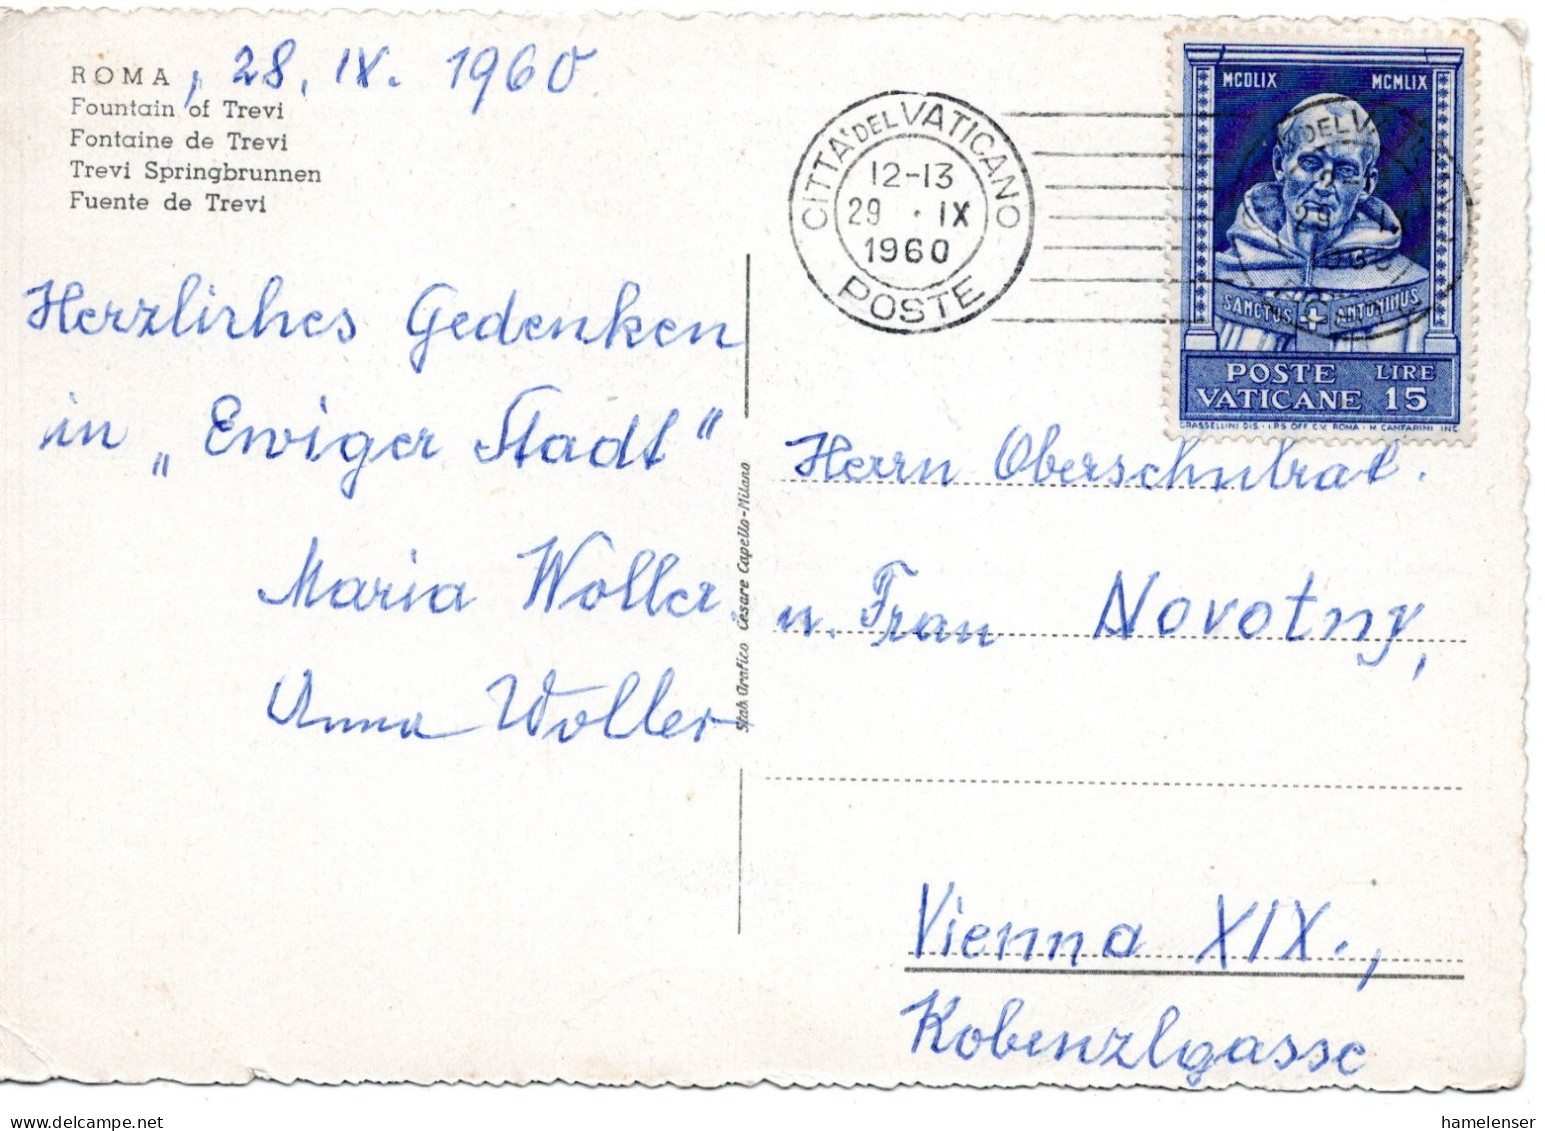 ROMA, 28. IX. 1960.
Fountain of Trevi
Fontaine de Trevi
Trevi Springbrunnen
Fuente de Trevi
Herzliches Gedenken
in „Ewiger Stadt"
Maria Woller.
Anna Woller
Stab. Grafico Cesare Capello-Milano
CITTA' DEL VATICANO
12-13
29 . IX
1960
POSTE
MCDLIX MCMLIX
SANCTUS + ANTONINUS
POSTE LIRE
VATICANE 15
GRASSELLINI DIS · I.P.S. OFF. C.V. ROMA · M. CANFARINI INC.
Herrn Oberschulrat.
u. Frau Novotny,
Vienna XIX.,
Kobenzlgasse
hamelenser